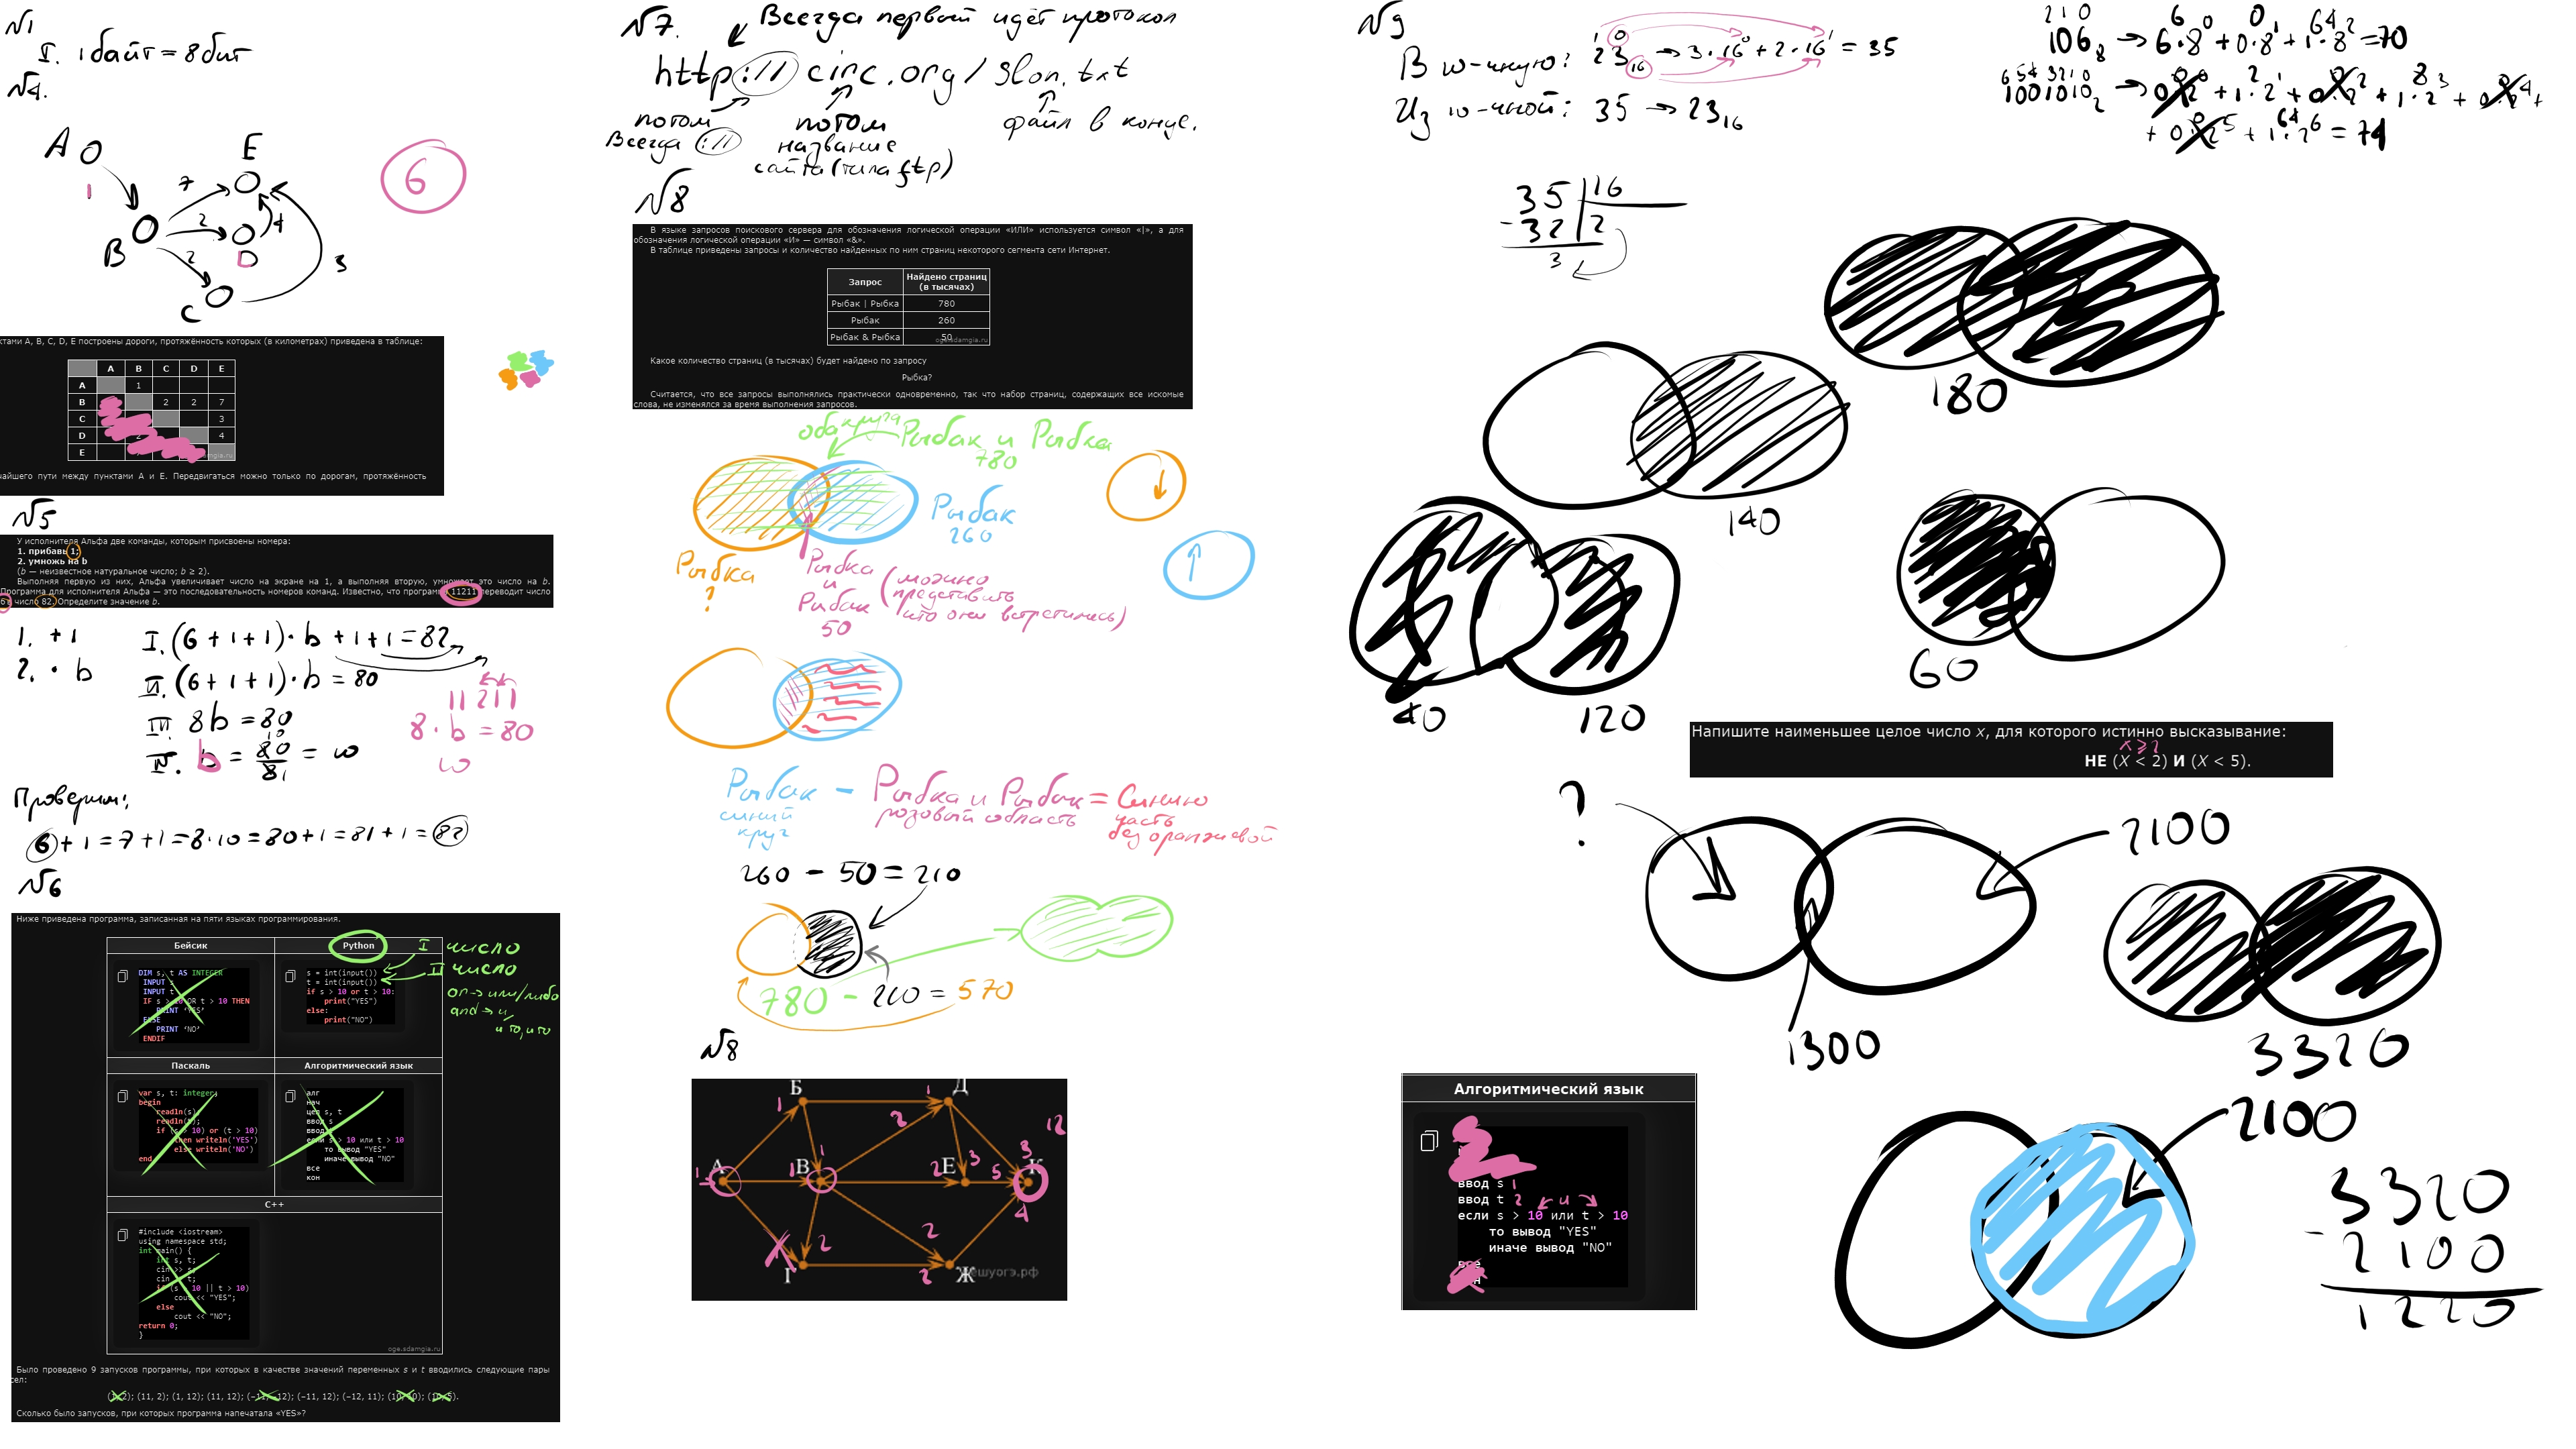 №1
I. 1 байт = 8 бит
№4.
A
E
1
7
6
2
4
B
D
2
3
C
ктами A, B, C, D, E построены дороги, протяжённость которых (в километрах) приведена в таблице:
A B C D E
A 1
B 2 2 7
C 3
D 2 4
E
чайшего пути между пунктами A и E. Передвигаться можно только по дорогам, протяжённость
№5
У исполнителя Альфа две команды, которым присвоены номера:
1. прибавь 1;
2. умножь на b
(b — неизвестное натуральное число; b ≥ 2).
Выполняя первую из них, Альфа увеличивает число на экране на 1, а выполняя вторую, умножает это число на b.
Программа для исполнителя Альфа — это последовательность номеров команд. Известно, что программа 11211 переводит число
6 в число 82. Определите значение b.
1. +1
2. · b
I. (6 + 1 + 1) · b + 1 + 1 = 82
II. (6 + 1 + 1) · b = 80
III 8b = 80
IV. b = 80/8 = 10
11211
8 · b = 80
10
Проверим:
6 + 1 = 7 + 1 = 8 · 10 = 80 + 1 = 81 + 1 = 82
№6
Ниже приведена программа, записанная на пяти языках программирования.
Бейсик
DIM s, t AS INTEGER
INPUT s
INPUT t
IF s > 10 OR t > 10 THEN
PRINT 'YES'
ELSE
PRINT 'NO'
ENDIF
Python
s = int(input())
t = int(input())
if s > 10 or t > 10:
print("YES")
else:
print("NO")
I число
II число
or → или/либо
and → и
и то, и то
Паскаль
var s, t: integer;
begin
readln(s);
readln(t);
if (s > 10) or (t > 10)
then writeln('YES')
else writeln('NO')
end.
Алгоритмический язык
алг
нач
цел s, t
ввод s
ввод t
если s > 10 или t > 10
то вывод "YES"
иначе вывод "NO"
все
кон
C++
#include <iostream>
using namespace std;
int main() {
int s, t;
cin >> s;
cin >> t;
if (s > 10 || t > 10)
cout << "YES";
else
cout << "NO";
return 0;
}
oge.sdamgia.ru
Было проведено 9 запусков программы, при которых в качестве значений переменных s и t вводились следующие пары
сел:
(1, 2); (11, 2); (1, 12); (11, 12); (–11, –12); (–11, 12); (–12, 11); (10, 10); (10, 5).
Сколько было запусков, при которых программа напечатала «YES»?
№7.
Всегда первый идёт протокол
http://circ.org/slon.txt
потом
Всегда ://
потом
название
сайта (типа ftp)
файл в конце.
№8
В языке запросов поискового сервера для обозначения логической операции «ИЛИ» используется символ «|», а для
обозначения логической операции «И» — символ «&».
В таблице приведены запросы и количество найденных по ним страниц некоторого сегмента сети Интернет.
Запрос Найдено страниц
(в тысячах)
Рыбак | Рыбка 780
Рыбак 260
Рыбак & Рыбка 50
oge.sdamgia.ru
Какое количество страниц (в тысячах) будет найдено по запросу
Рыбка?
Считается, что все запросы выполнялись практически одновременно, так что набор страниц, содержащих все искомые
слова, не изменялся за время выполнения запросов.
оба круга
Рыбак и Рыбка
780
Рыбак
260
Рыбка
?
Рыбка
и
Рыбак
50
(можно
представить
что они встретились)
Рыбак – Рыбка и Рыбак = Синюю
синий
круг
розовый область
часть
без оранжевой
260 – 50 = 210
780 – 210 = 570
№8
Б
Д
А
В
Е
К
Г
Ж
1
1
2
1
12
1
1
2
3
5
3
4
2
2
2
решуогэ.рф
№9
В 10-чную: 23₁₆ → 3 · 16⁰ + 2 · 16¹ = 35
Из 10-чной: 35 → 23₁₆
35 | 16
– 32 | 2
3
2 1 0
106₈ → 6 · 8⁰ + 0 · 8¹ + 1 · 8² = 70
6 0 64
6 5 4 3 2 1 0
1001010₂ → 0 · 2⁰ + 1 · 2¹ + 0 · 2² + 1 · 2³ + 0 · 2⁴ +
+ 0 · 2⁵ + 1 · 2⁶ = 74
180
140
40
120
60
Напишите наименьшее целое число x, для которого истинно высказывание:
x ≥ 2
НЕ (X < 2) И (X < 5).
?
2100
1300
3320
Алгоритмический язык
ввод s 1
ввод t 2
и
если s > 10 или t > 10
то вывод "YES"
иначе вывод "NO"
все
2100
3320
– 2100
1220